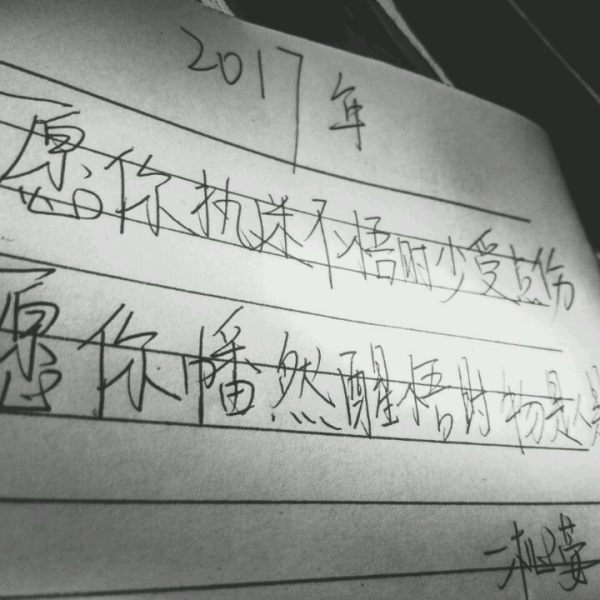 2017年
愿你执迷不悟时少受点伤
愿你幡然醒悟时物是人是